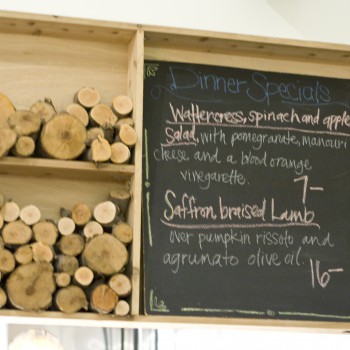 Dinner Specials
Wattercress, spinach and apple
Salad, with pomegranate, manouri
cheese and a blood orange
vinegarette.
7-
Saffron braised Lamb
over pumpkin rissoto and
agrumato olive oil.
16-